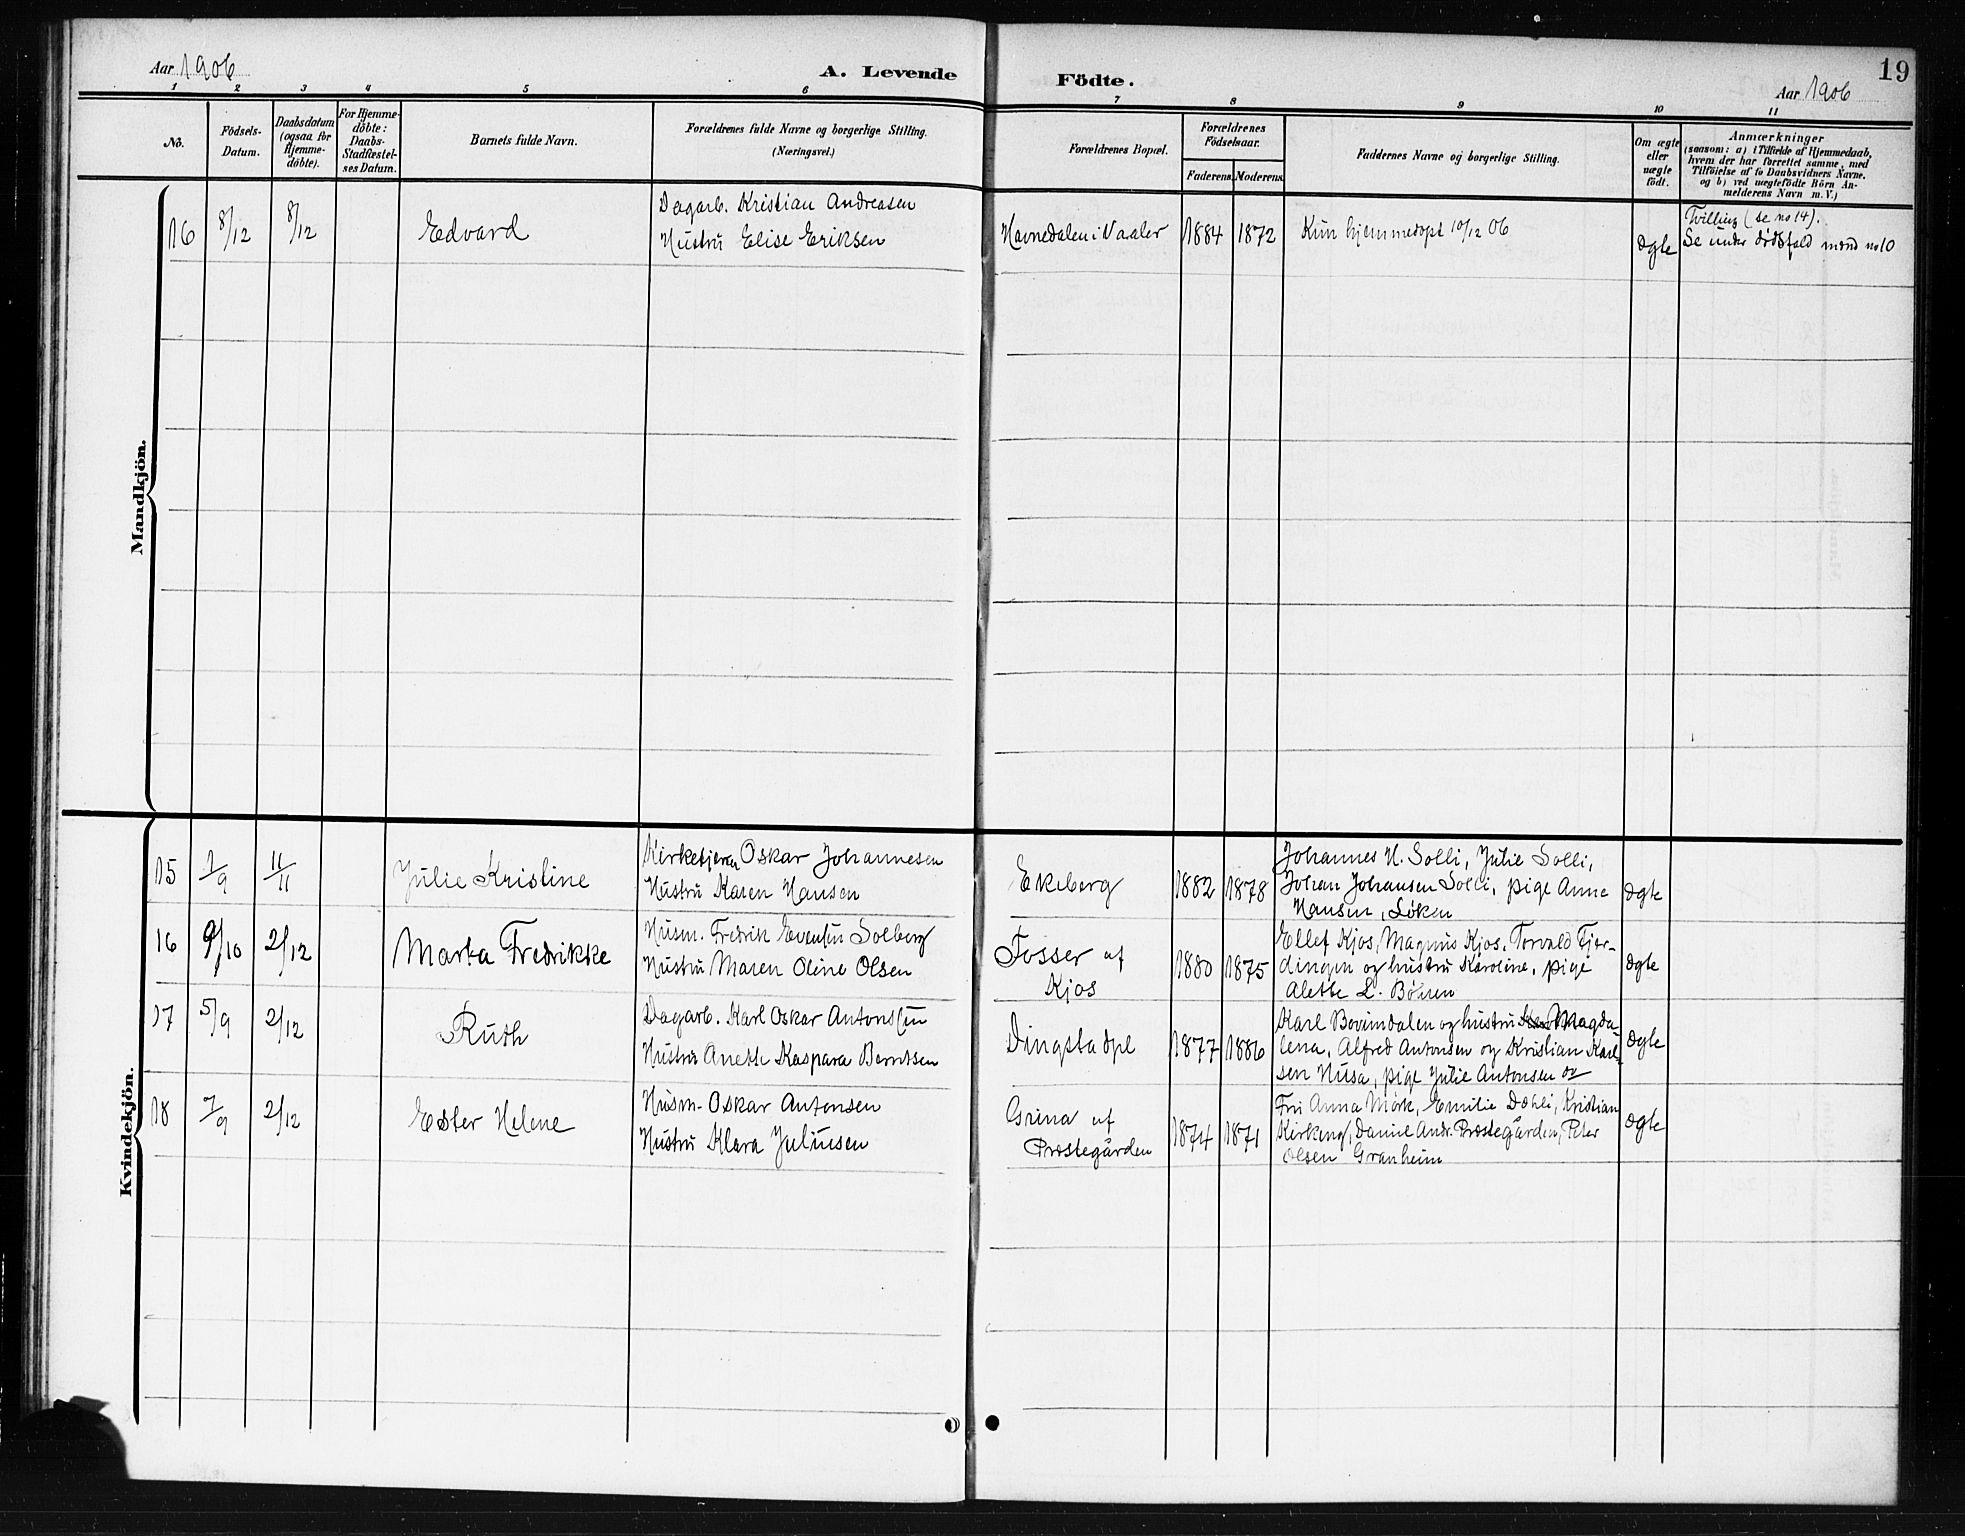 Aar 1906
A. Levende Födte.
Aar 1906
19
1 2 3 4 5 6 7 8 9 10 11
No.
Födsels-
Datum.
Daabsdatum
(ogsaa for
Hjemme-
döbte).
For Hjemme-
döbte:
Daabs-
Stadfæstel-
ses Datum.
Barnets fulde Navn.
Forældrenes fulde Navne og borgerlige Stilling.
(Næringsvei.)
Forældrenes Bopæl.
Forældrenes
Födselsaar.
Faderens. Moderens.
Faddernes Navne og borgerlige Stilling.
Om ægte
eller
uægte
födt.
Anmærkninger
(saasom: a) i Tilfælde af Hjemmedaab,
hvem der har forrettet samme, med
Tilföielse af to Daabsvidners Navne,
og b) ved uægtefödte Börn An-
melderens Navn m. V.)
Mandkjön.
16 8/12 8/12 Edvard
Dagarb. Kristian Andreasen
Hustru Elise Eriksen
Havnedalen i Vaaler 1884 1872
Kun hjemmedöpt 10/12 06
ægte
Tvilling (se no 14).
Se under dödsfald mænd no 10
Kvindekjön.
15 7/9 11/11 Julie Kristine
Kirketjener Oskar Johannesen
Hustru Karen Hansen
Ekeberg 1882 1878
Johannes H. Solli, Julie Solli,
Johan Johansen Solli, pige Anna
Hansen, Løken
ægte
16 9/10 2/12 Marta Fredrikke
Husm. Fredrik Evensen Solberg
Hustru Maren Oline Olsen
Fosser af
Kjos
1880 1875
Ellef Kjos, Magnus Kjos, Torvald Fjer-
dingen og hustru Karoline, pige
Alette L. Böhren
ægte
17 5/9 2/12 Ruth
Dagarb. Karl Oskar Antonsen
Hustru Anette Kaspara Berntsen
Dingstadpl 1877 1886
Karl Bovimdalen og hustru Magda-
lena, Alfred Antonsen og Kristian Karl-
sen Husa, pige Julie Antonsen og
ægte
18 7/9 2/12 Ester Helene
Husm. Oskar Antonsen
Hustru Klara Juliusen
Grina af
Prestegården
1874 1871
Fru Anna Mörk, Emilie Dæhli, Kristian
Kirkeng, Daniel Andr. Prestegården, Peter
Olsen Granheim
ægte